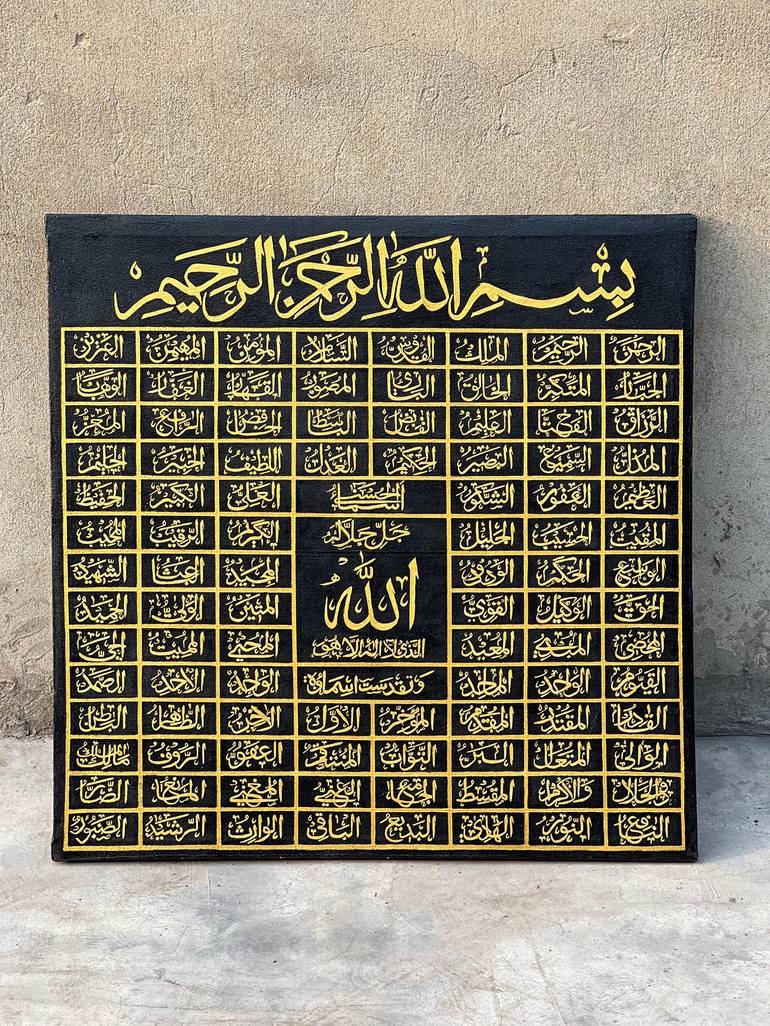 بِسْمِ اللَّهِ الرَّحْمَنِ الرَّحِيمِ
الرحمن الرحيم الملك القدوس السلام المؤمن المهيمن العزيز
الجبار المتكبر الخالق البارئ المصور القهار الغفار الوهاب
الرزاق الفتاح العليم القابض الباسط الخافض الرافع المعز
المذل السميع البصير الحكيم العدل اللطيف الخبير الحليم
العظيم الغفور الشكور أسماء الحسنى العلي الكبير الحفيظ
المقيت الحسيب الجليل جل جلاله الكريم الرقيب المجيب
الواسع الحكيم الودود المجيد الباعث الشهيد
الحق الوكيل القوي الله المتين الولي الحميد
المحصي المبدئ المعيد الذي لا اله الا هو المحيي المميت الحي
القيوم الواجد الماجد وتقدست اسماؤه الواحد الاحد الصمد
القادر المقتدر المقدم المؤخر الأول الآخر الظاهر الباطن
الوالي المتعال البر التواب المنتقم العفو الرؤف مالك الملك
ذوالجلال والاكرام المقسط الجامع الغني المغني المانع الضار
النافع النور الهادي البديع الباقي الوارث الرشيد الصبور